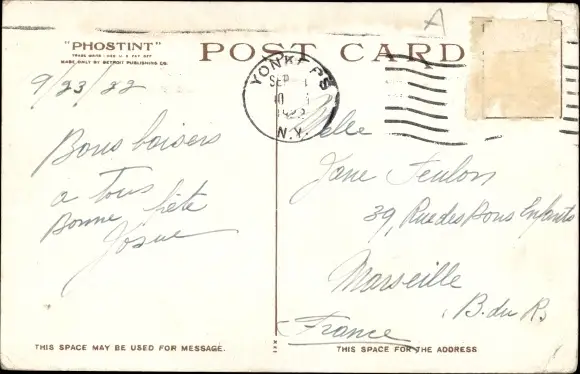 "PHOSTINT"
TRADE MARK REG U S PAT OFF
MADE ONLY BY DETROIT PUBLISHING CO.
POST CARD
A
YONKERS
SEP
1922
N.Y.
9/23/22
Bons baisers
a Tous
Bonne fête
Josue
Melle
Jane Feulon
39, Rue des Bons Enfants
Marseille
B. du R.
France
THIS SPACE MAY BE USED FOR MESSAGE.
THIS SPACE FOR THE ADDRESS